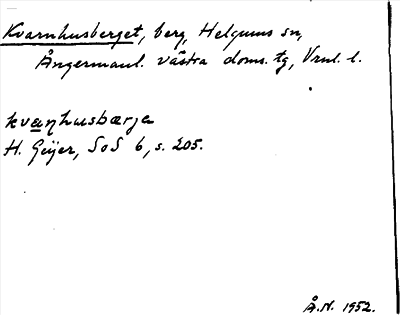 Kvarnhusberget, berg, Helgums sn,
Ångermanl. västra doms. tg, Vrnl. l.
kvaṇhusbærja
H. Geijer, SoS 6, s. 205.
Å.N. 1952.